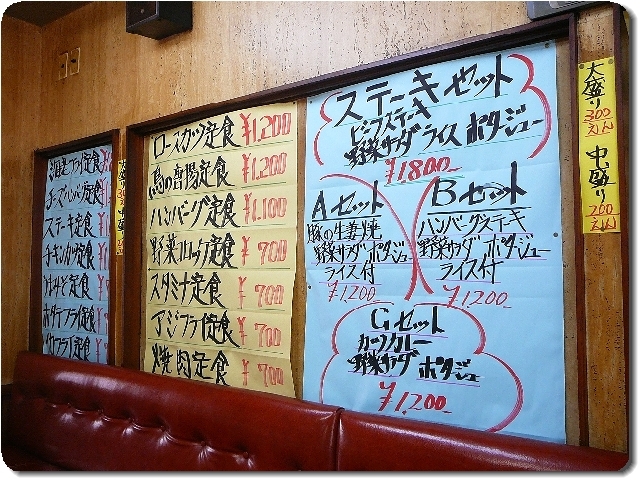 海老フライ定食
チーズハンバーグ定食
ステーキ定食
チキンカツ定食
ホタテフライ定食
ロースカツ定食 ¥1,200
鳥の唐揚定食 ¥1,200
ハンバーグ定食 ¥1,100
野菜コロッケ定食 ¥700
スタミナ定食 ¥700
アジフライ定食 ¥700
焼肉定食 ¥700
ステーキセット
ビーフステーキ
野菜サラダ ライス ポタージュー
¥1800
Aセット
豚の生姜焼
野菜サラダ ポタジュー
ライス付
¥1,200
Bセット
ハンバーグステーキ
野菜サラダ ポタジュー
ライス付
¥1,200
Cセット
カツカレー
野菜サラダ ポタジュー
¥1,200
大盛り 300えん 中盛り 200えん